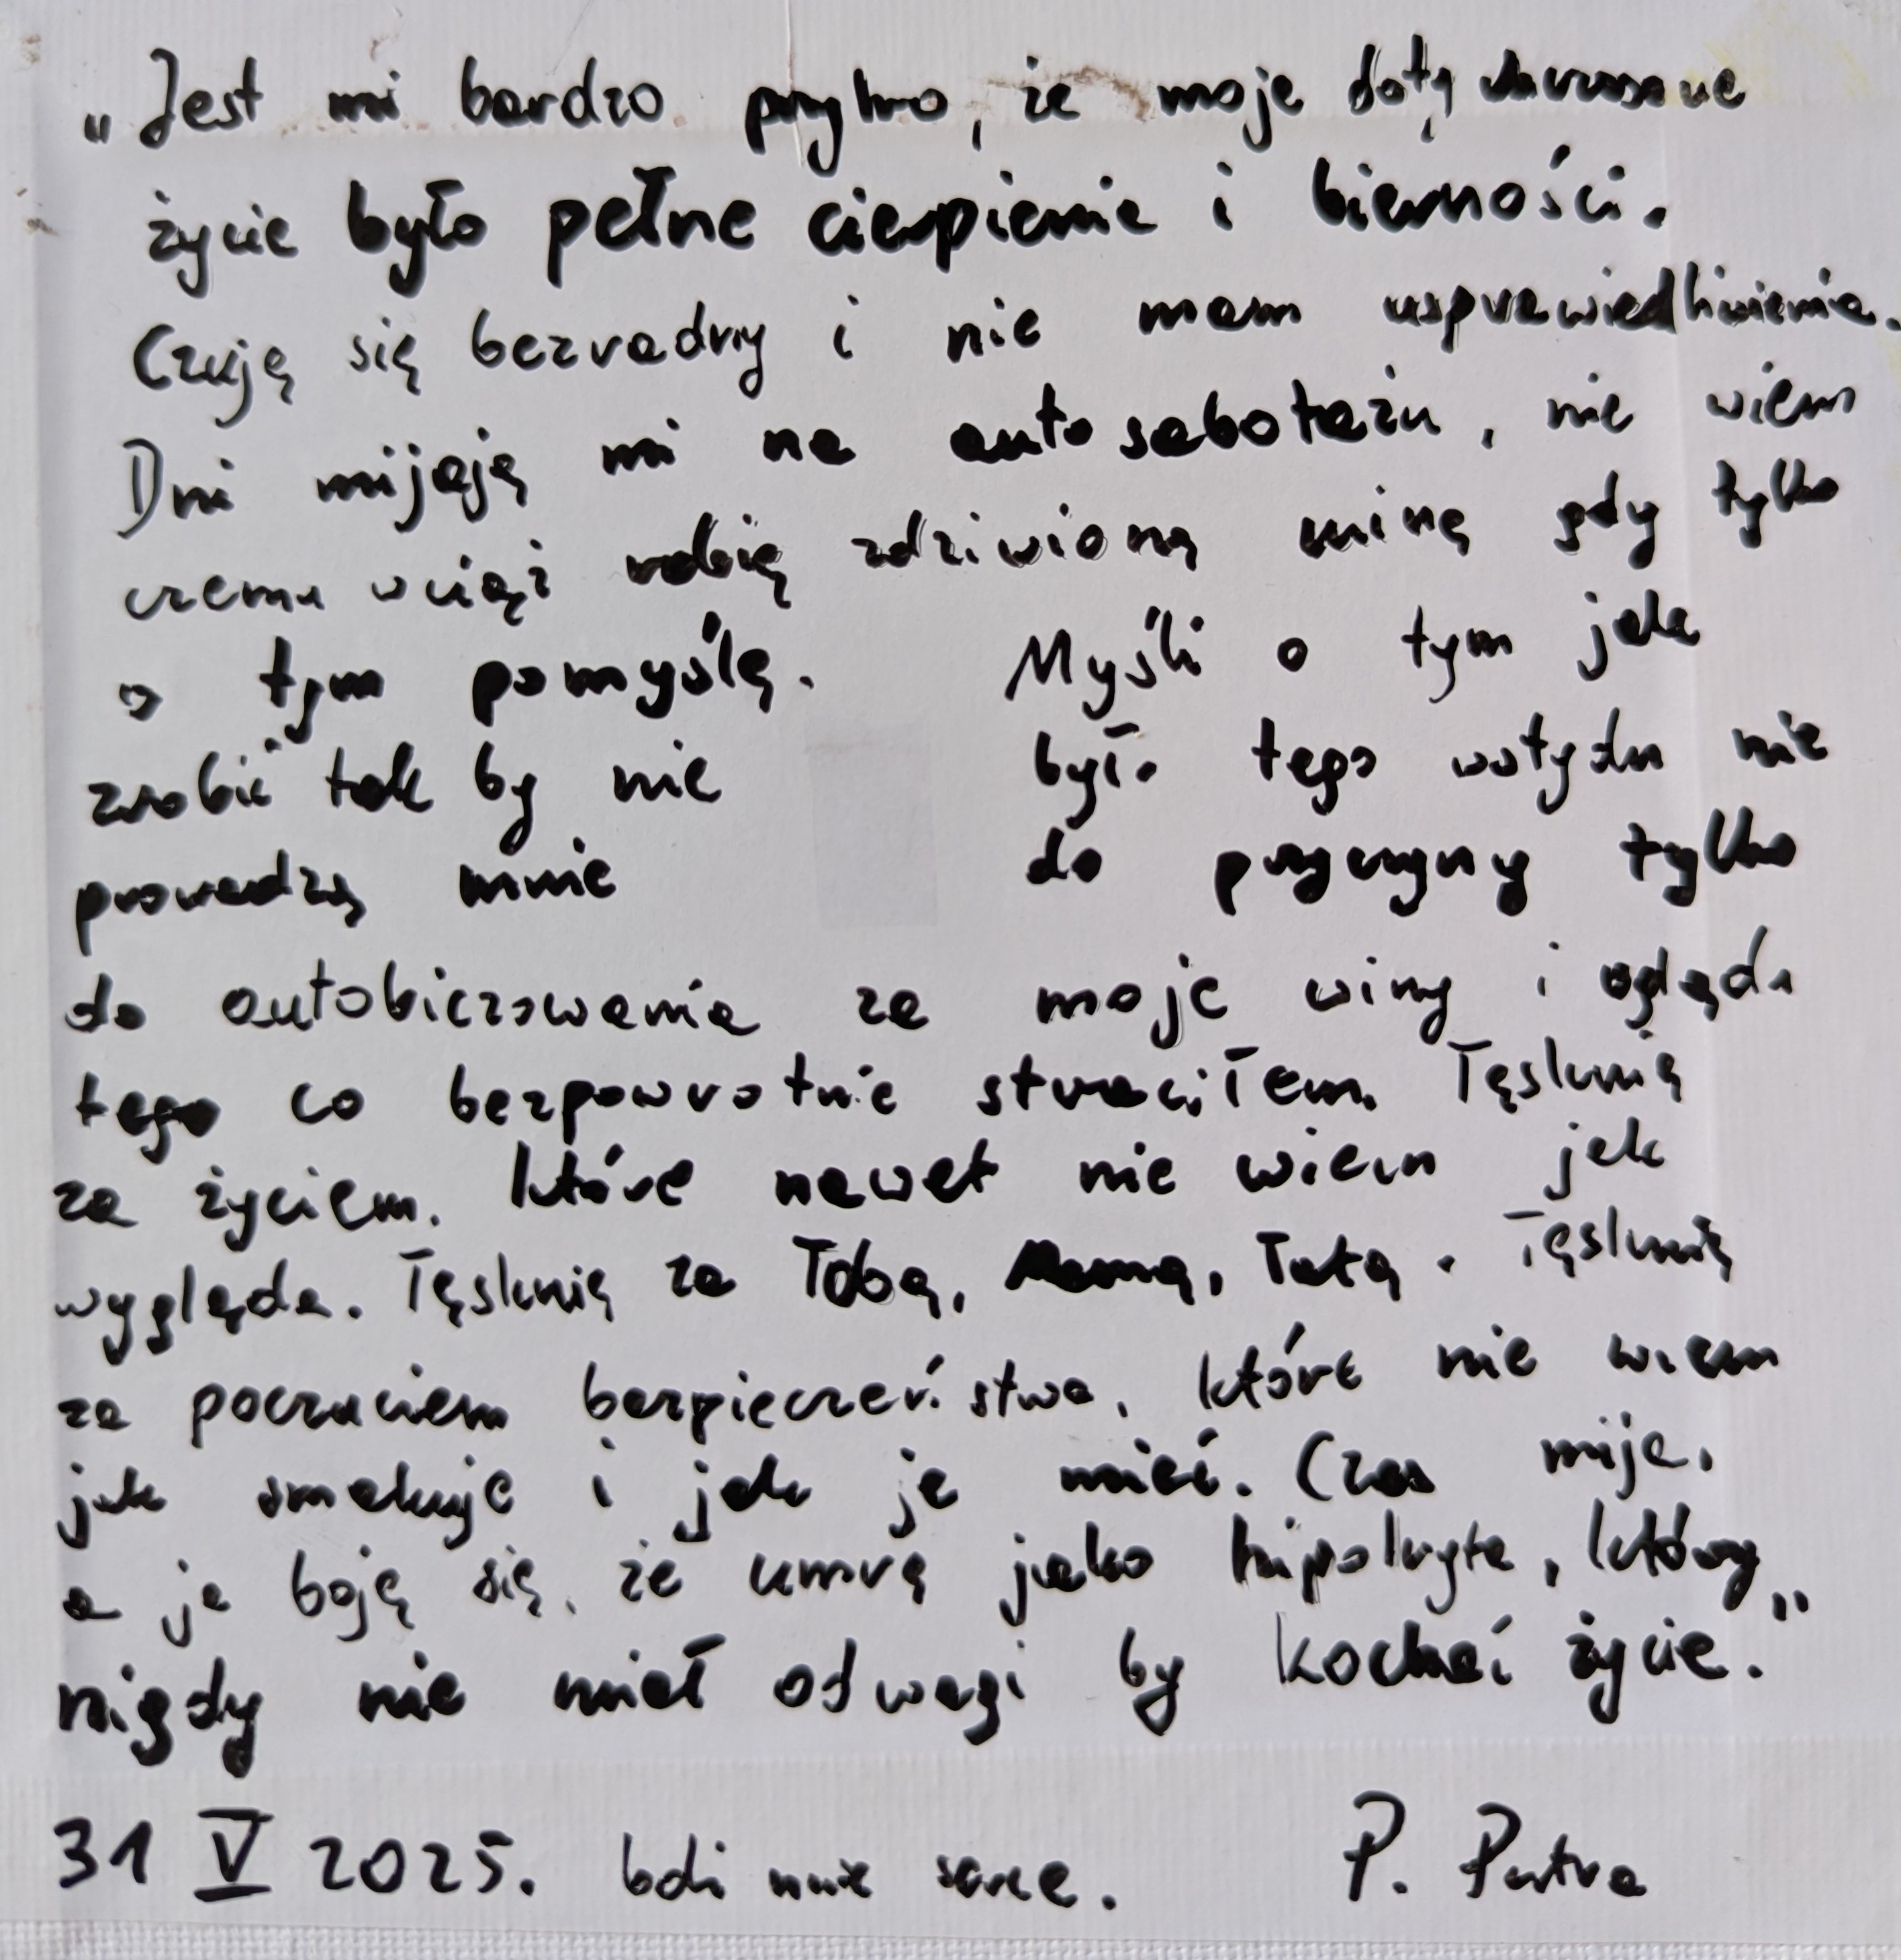 „Jest mi bardzo przykro, że moje dotychczasowe
życie było pełne cierpienia i bierności.
Czuję się bezradny i nie mam usprawiedliwienia.
Dni mijają mi na autosabotażu, nie wiem
czemu wciąż robię zdziwioną minę gdy tylko
o tym pomyślę. Myśli o tym jak
zrobić tak by nie było tego wstydu nie
prowadzą mnie do przyczyny tylko
do autobiczowania za moje winy i oglądu
tego co bezpowrotnie straciłem. Tęsknię
za życiem, które nawet nie wiem jak
wygląda. Tęsknię za Tobą, Mamą, Tatą. Tęsknię
za poczuciem bezpieczeństwa, które nie wiem
jak smakuje i jak je mieć. Czas mija,
a ja boję się, że umrę jako hipokryta, który
nigdy nie miał odwagi by kochać życie.”
31 V 2025. boli mnie serce. P. Putra